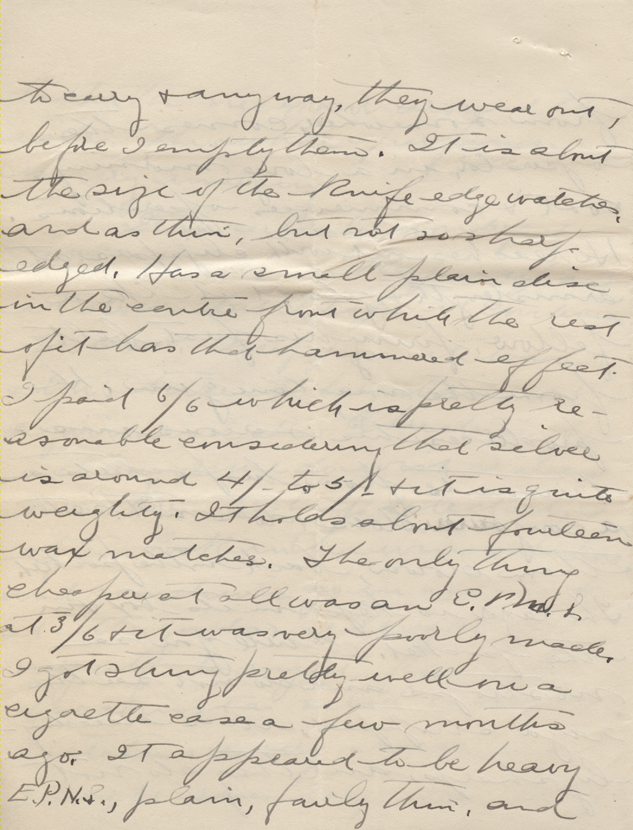 to carry & anyway, they wear out,
before I empty them. It is about
the size of the Knife edge watches,
and as thin, but not so sharp
edged. Has a small plain disc
in the centre front while the rest
of it has that hammered effect.
I paid 6/6 which is pretty re-
asonable considering that silver
is around 4/- to 5/- & it is quite
weighty. It holds about fourteen
wax matches. The only thing
cheaper at all was an E.P.N.S.
at 3/6 & it was very poorly made.
I got stung pretty well on a
cigarette case a few months
ago. It appeared to be heavy
E.P.N.S., plain, fairly thin, and